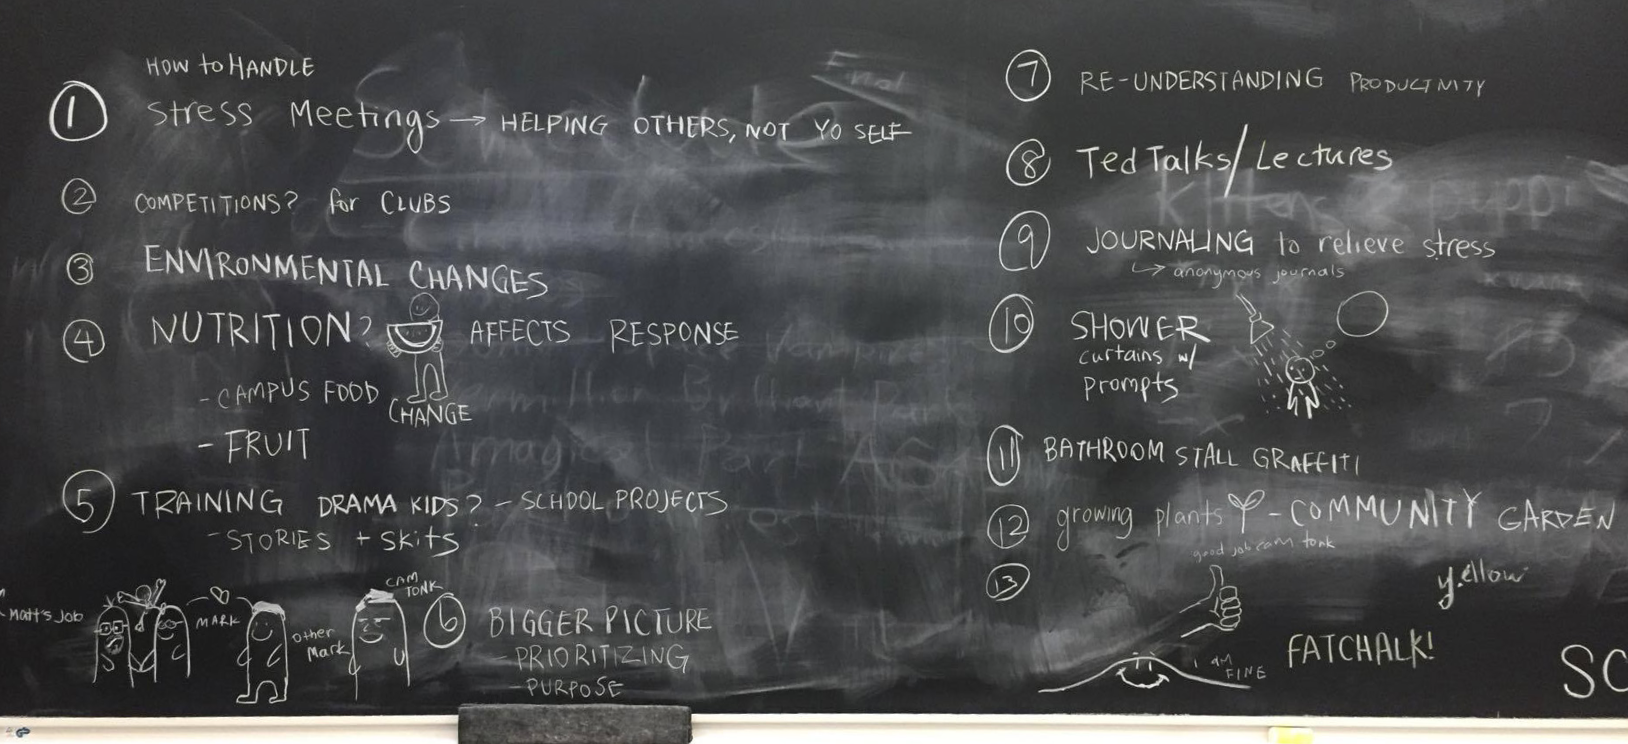 HOW to HANDLE
1 Stress Meetings → HELPING OTHERS, NOT YO SELF
2 COMPETITIONS? for CLUBS
3 ENVIRONMENTAL CHANGES
4 NUTRITION? AFFECTS RESPONSE
- CAMPUS FOOD
CHANGE
- FRUIT
5 TRAINING DRAMA KIDS? - SCHOOL PROJECTS
- STORIES + SKITS
Matt's Job
MARK
other Mark
CAM TONK
6 BIGGER PICTURE
- PRIORITIZING
- PURPOSE
7 RE-UNDERSTANDING PRODUCTIVITY
8 Ted Talks/Lectures
9 JOURNALING to relieve stress
↳ anonymous journals
10 SHOWER
curtains w/
prompts
11 BATHROOM STALL GRAFFITI
12 growing plants - COMMUNITY GARDEN
good job cam tonk
13
yellow
I AM FINE
FATCHALK!
SC
Final
Schedule
Kittens & puppi